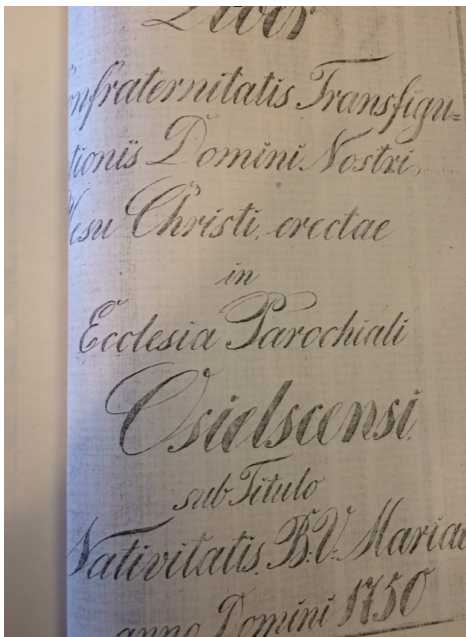 Liber
onfraternitatis Transfigu=
tionis Domini Nostri
Jesu Christi, erectae
in
Ecclesia Parochiali
Osielscensi
sub Titulo
Nativitatis B.V. Mariae
anno Domini 1750